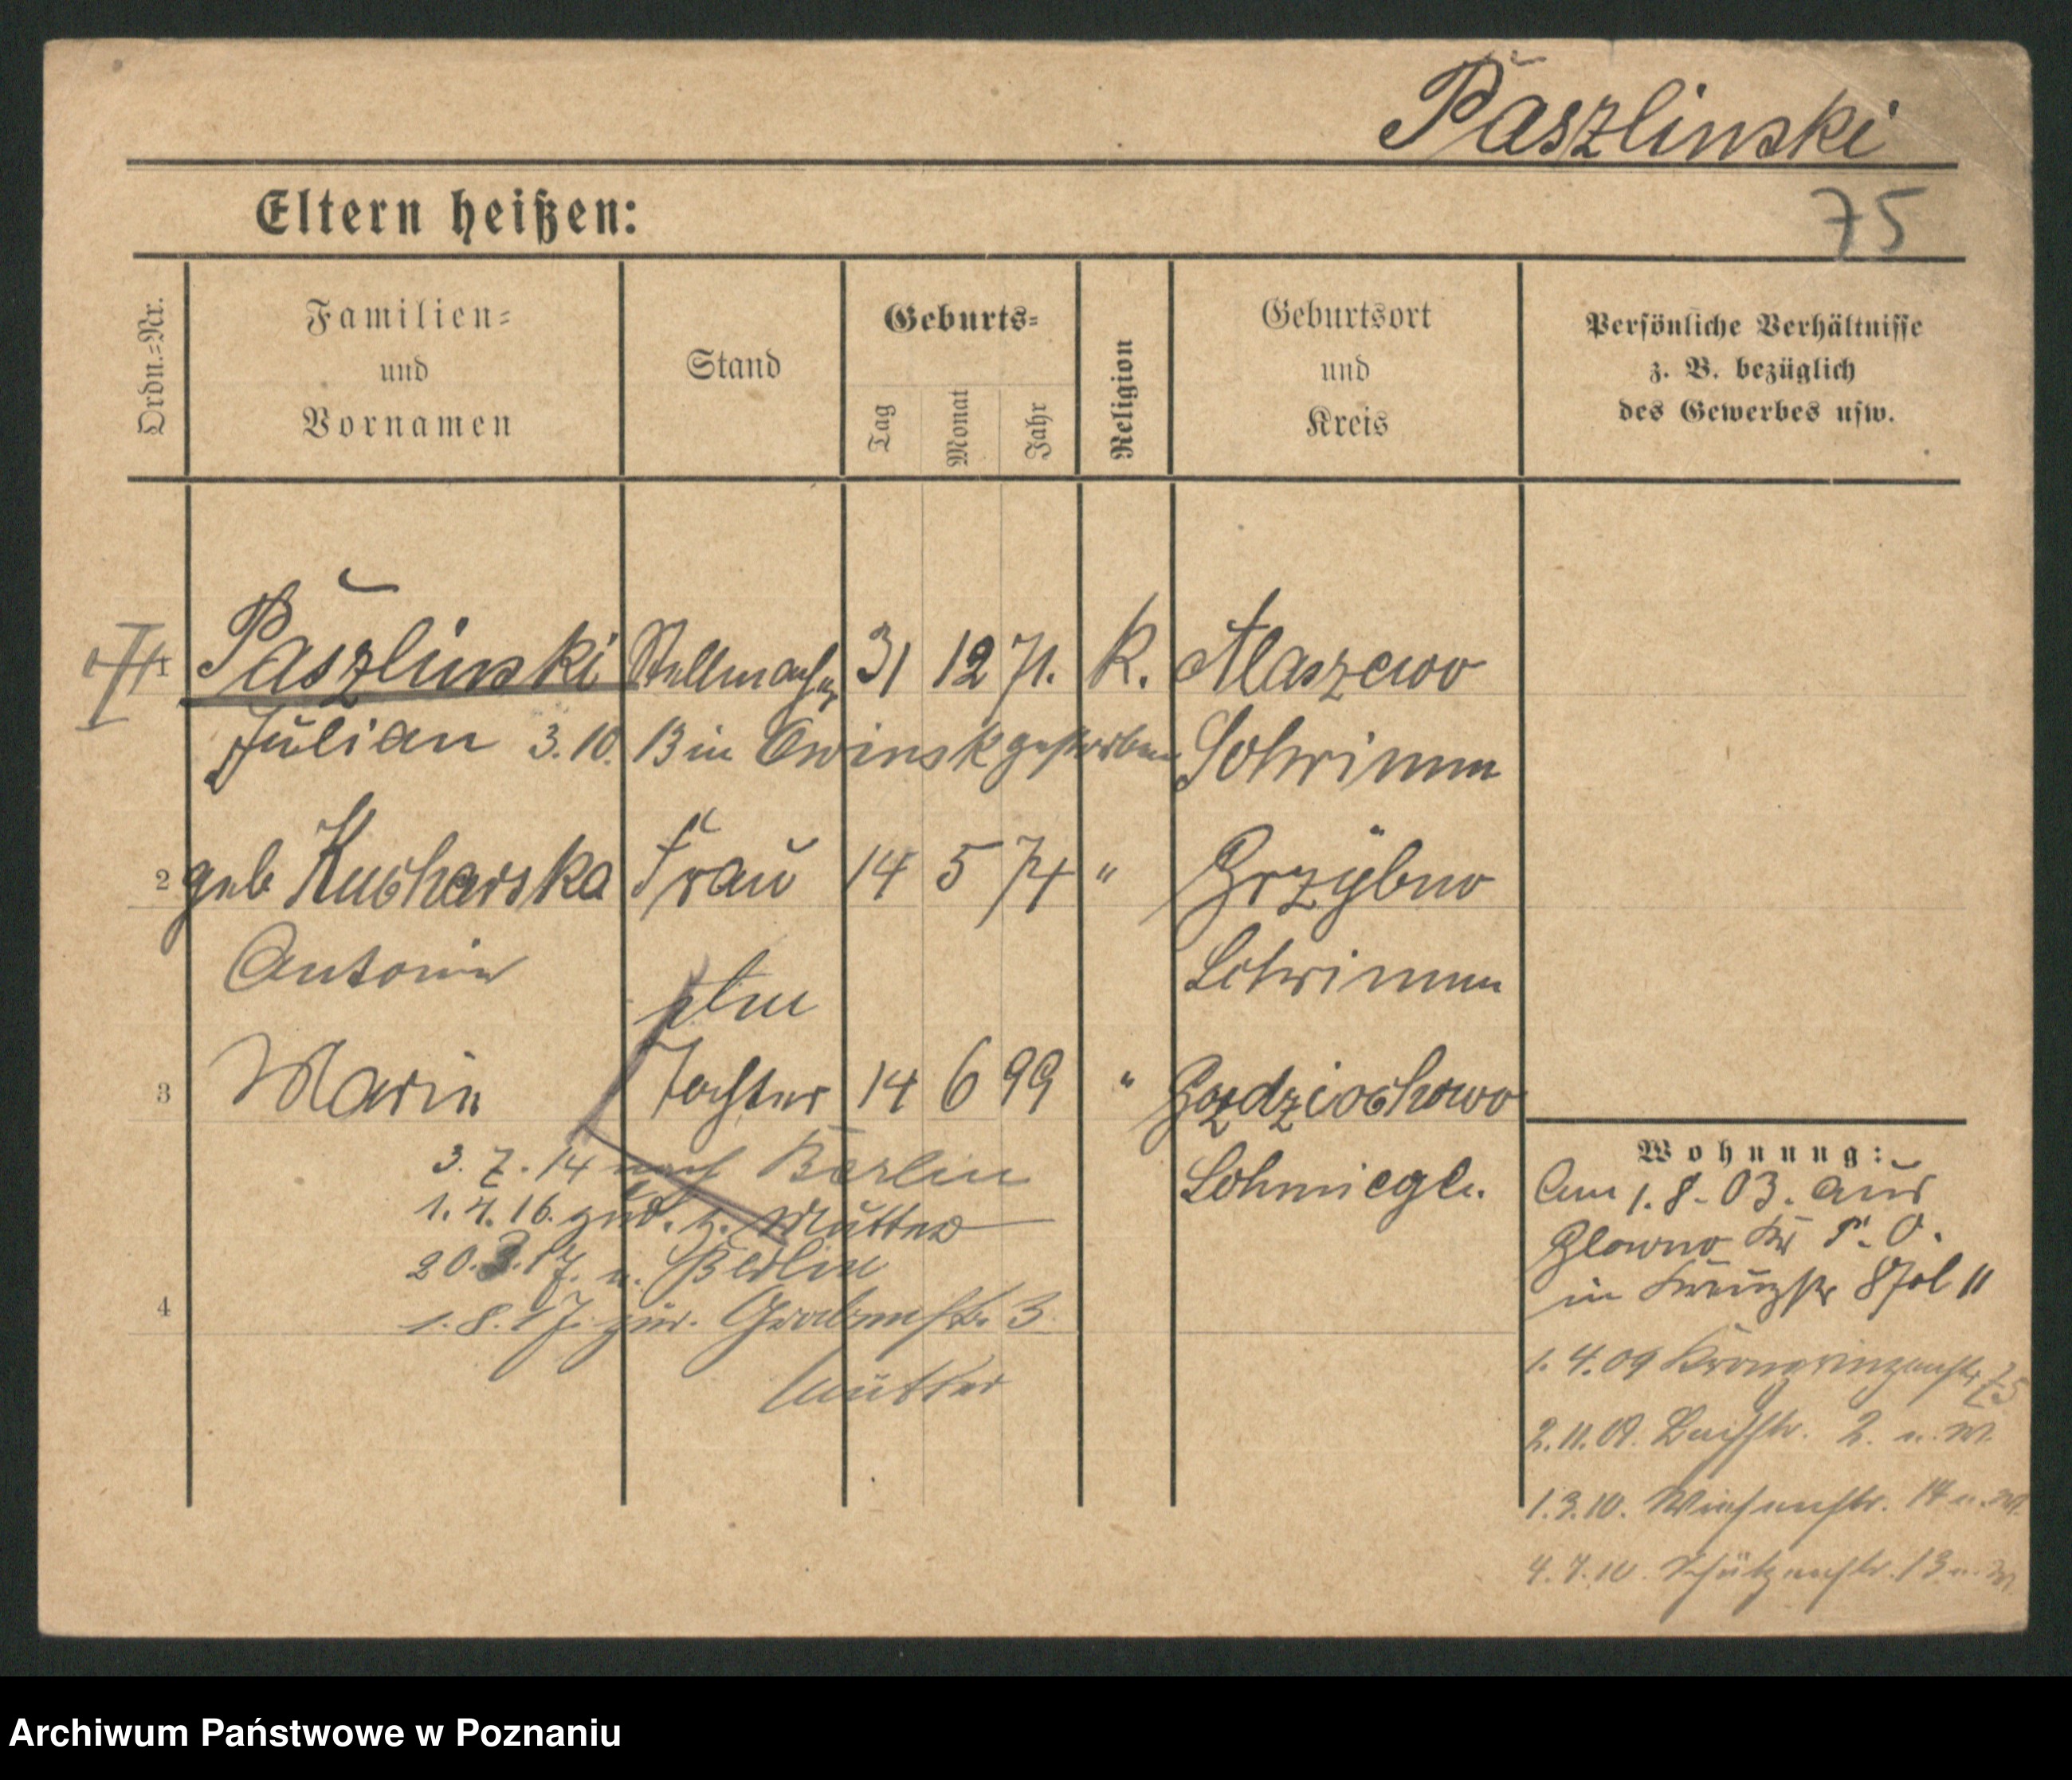 Paszlinski
Eltern heißen:
75
Ordn.-Nr.
Familien-
und
Vornamen
Stand
Geburts-
Tag
Monat
Jahr
Religion
Geburtsort
und
Kreis
Persönliche Verhältnisse
z. B. bezüglich
des Gewerbes usw.
1 Paszlinski Stellmacher 31 12 71. K.
Julian 3.10. 13 in Owinsk gestorben Schrimm
2 geb Kucharska Frau 14 5 74 " Grzybno
Antonie Schrimm
3 Marie Tochter 14 6 99 "
Schmiegel.
3. 7. 14 nach Berlin
1. 4. 16. zur. z. Mutter
20.3.17. n. Berlin
4 1. 8. 17. zur. Grabenstr. 3
Mutter
Wohnung:
Am 1. 8. 03. aus
Glowno Kr P. O.
in Kreuzstr 8
1. 4. 09 Kronprinzenstr 75
2. 11. 09. 2.
1. 3. 10. Wiesenstr. 14
4. 7. 10. Schützenstr. 13
Archiwum Państwowe w Poznaniu